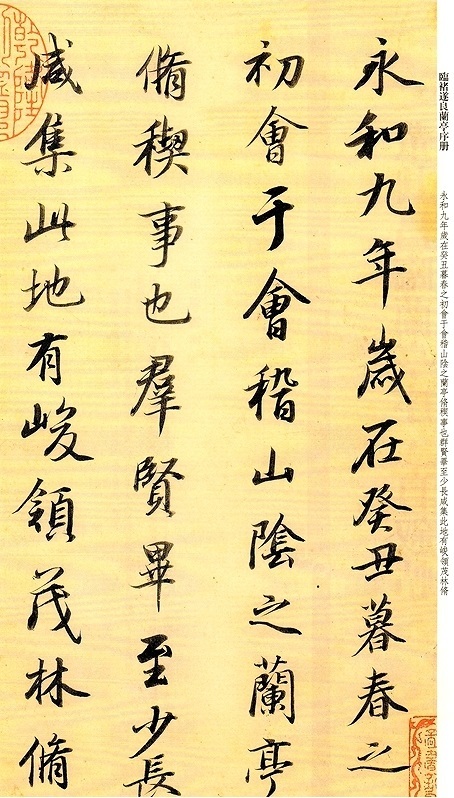 臨褚遂良蘭亭序册
永和九年歲在癸丑暮春之初會于會稽山陰之蘭亭脩稧事也群賢畢至少長咸集此地有峻領茂林脩
永和九年歲在癸丑暮春之
初會于會稽山陰之蘭亭
脩稧事也羣賢畢至少長
咸集此地有峻領茂林脩